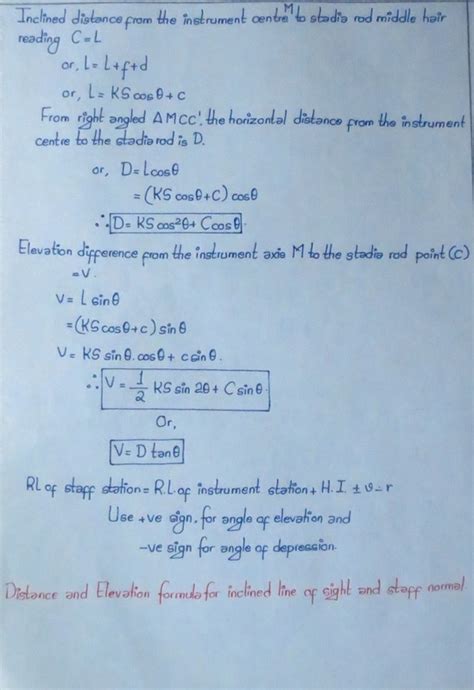 Inclined distance from the instrument centre M to stadia rod middle hair
reading C = L
or, L = L + f + d
or, L = KS cosθ + c
From right angled Δ MCC', the horizontal distance from the instrument
centre to the stadia rod is D.
or, D = L cosθ
= (KS cosθ + C) cosθ
∴ D = KS cos²θ + C cosθ
Elevation difference from the instrument axis M to the stadia rod point (C)
= V.
V = L sinθ
= (KS cosθ + c) sinθ
V = KS sinθ. cosθ + c sinθ.
∴ V = 1/2 KS sin 2θ + C sinθ.
Or,
V = D tanθ
RL of staff station = R.L of instrument station + H.I ± v - r
Use +ve sign, for angle of elevation and
-ve sign for angle of depression.
Distance and Elevation formula for inclined line of sight and staff normal.